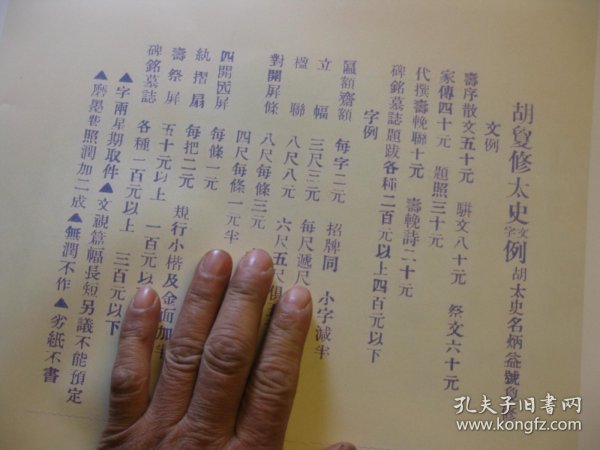 胡夐修太史文字例 胡太史名炳益號
文例
壽序散文五十元 駢文八十元 祭文六十元
家傳四十元 題照三十元
代撰壽輓聯十元 壽輓詩二十元
碑銘墓誌題跋各種二百元以上四百元以下
字例
匾額齋額 每字二元 招牌同 小字減半
立幅 三尺三元 每尺遞
楹聯 八尺八元 六尺五尺俱
對開屏條 八尺每條三元
四開図屏 四尺每條一元半
紈摺扇 每條一元
壽祭屏 每把二元 規行小楷及金面加半
碑銘墓誌 五十元以上 一百元以
各種一百元以上 三百元以下
▲字兩星期取件▲文視篇幅長短另議不能預定
▲磨墨費照潤加二成▲無潤不作▲劣紙不書
孔夫子旧书网
www.kongfz.com